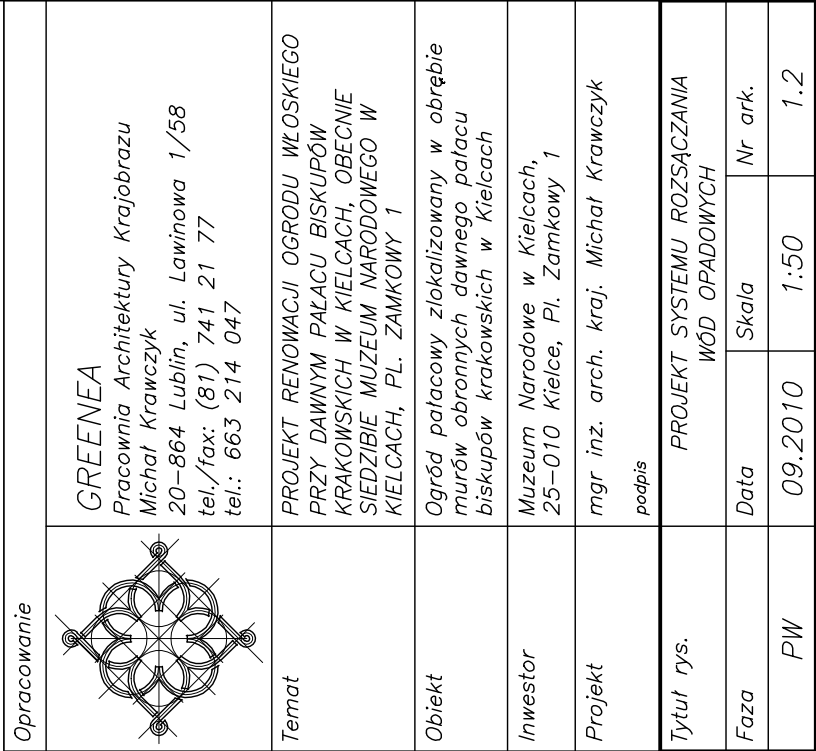 Opracowanie
GREENEA
Pracownia Architektury Krajobrazu
Michał Krawczyk
20-864 Lublin, ul. Lawinowa 1/58
tel./fax: (81) 741 21 77
tel.: 663 214 047
Temat
PROJEKT RENOWACJI OGRODU WŁOSKIEGO
PRZY DAWNYM PAŁACU BISKUPÓW
KRAKOWSKICH W KIELCACH, OBECNIE
SIEDZIBIE MUZEUM NARODOWEGO W
KIELCACH, PL. ZAMKOWY 1
Obiekt
Ogród pałacowy zlokalizowany w obrębie
murów obronnych dawnego pałacu
biskupów krakowskich w Kielcach
Inwestor
Muzeum Narodowe w Kielcach,
25-010 Kielce, Pl. Zamkowy 1
Projekt
mgr inż. arch. kraj. Michał Krawczyk
podpis
Tytuł rys.
PROJEKT SYSTEMU ROZSĄCZANIA
WÓD OPADOWYCH
Faza Data Skala Nr ark.
PW 09.2010 1:50 1.2